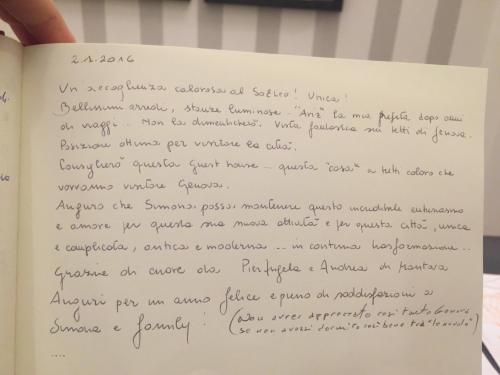 2.1.2016
Un accoglienza calorosa al Soffio! Unica!
Bellissimi arredi, stanze luminose. "Aria" la mia preferita dopo anni
di viaggi... Non la dimenticherò. Vista fantastica sui tetti di Genova.
Posizione ottima per visitare la città.
Consiglierò questa Guest house... questa "casa" a tutti coloro che
vorranno visitare Genova.
Auguro che Simona possa mantenere questo incredibile entusiasmo
e amore per questa sua nuova attività e per questa città, unica
e complicata, antica e moderna... in continua trasformazione...
Grazie di cuore da Pierangela e Andrea di Mantova
Auguri per un anno felice e pieno di soddisfazioni a
Simona e family!
(Non avrei apprezzato così tanto Genova
se non avessi dormito così bene tra "le nuvole")
....